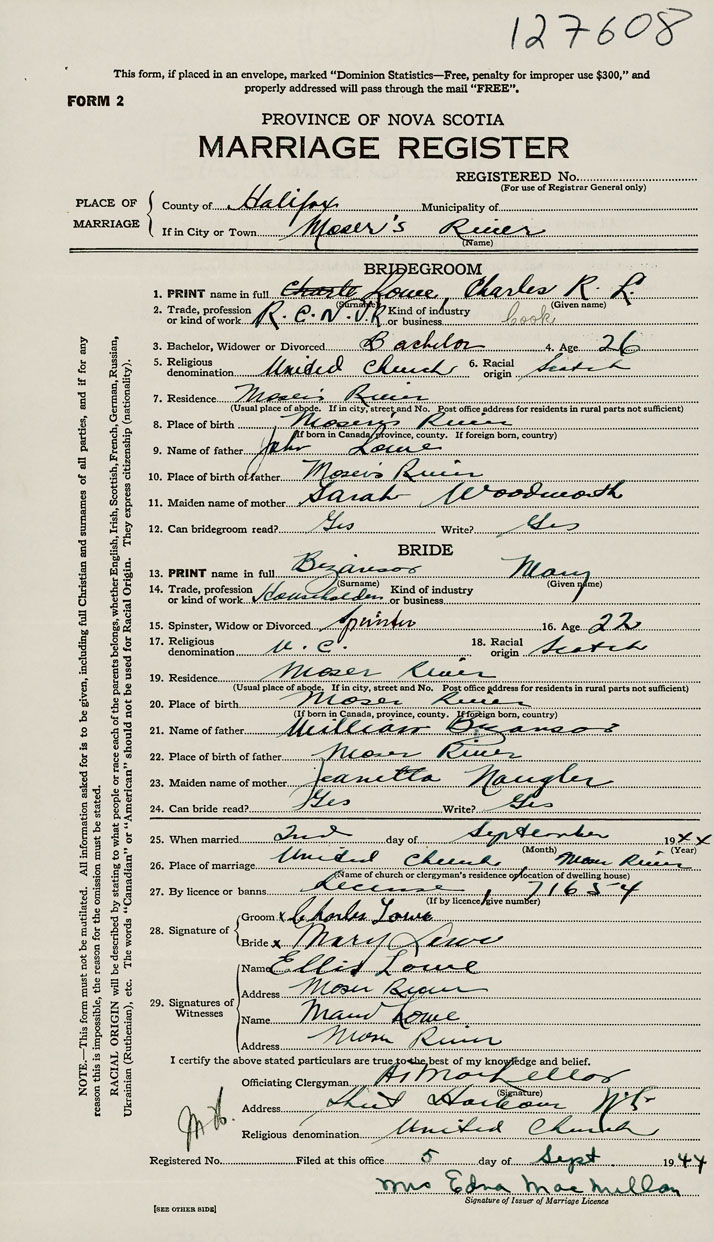 127608
This form, if placed in an envelope, marked "Dominion Statistics—Free, penalty for improper use $300," and
properly addressed will pass through the mail "FREE".
FORM 2
PROVINCE OF NOVA SCOTIA
MARRIAGE REGISTER
REGISTERED No.
(For use of Registrar General only)
PLACE OF MARRIAGE
County of Halifax Municipality of
If in City or Town Moser's River
(Name)
BRIDEGROOM
1. PRINT name in full Lowe, Charles R. L.
(Surname) (Given name)
2. Trade, profession or kind of work R.C.N.V.R Kind of industry or business Cook
3. Bachelor, Widower or Divorced Bachelor 4. Age 26
5. Religious denomination United Church 6. Racial origin Scotch
7. Residence Moser's River
(Usual place of abode. If in city, street and No. Post office address for residents in rural parts not sufficient)
8. Place of birth Moser's River
(If born in Canada, province, county. If foreign born, country)
9. Name of father John Lowe
10. Place of birth of father Moser's River
11. Maiden name of mother Sarah Woodworth
12. Can bridegroom read? Yes Write? Yes
BRIDE
13. PRINT name in full Bezanson Mary
(Surname) (Given name)
14. Trade, profession or kind of work Householder Kind of industry or business
15. Spinster, Widow or Divorced Spinster 16. Age 22
17. Religious denomination U.C. 18. Racial origin Scotch
19. Residence Moser River
(Usual place of abode. If in city, street and No. Post office address for residents in rural parts not sufficient)
20. Place of birth Moser River
(If born in Canada, province, county. If foreign born, country)
21. Name of father William Bezanson
22. Place of birth of father Moser River
23. Maiden name of mother Jeanetta Naugler
24. Can bride read? Yes Write? Yes
25. When married 2nd day of September 1944
(Month) (Year)
26. Place of marriage United Church, Moser River
(Name of church or clergyman's residence or location of dwelling house)
27. By licence or banns License, 71654
(If by licence, give number)
28. Signature of
Groom x Charles Lowe
Bride x Mary Lowe
29. Signatures of Witnesses
Name Ellis Lowe
Address Moser River
Name Maud Lowe
Address Moser River
I certify the above stated particulars are true to the best of my knowledge and belief.
Officiating Clergyman
(Signature)
Address Sheet Harbour N.S.
Religious denomination United Church
Registered No. Filed at this office 5 day of Sept. 1944
Mrs Edna MacMillan
Signature of Issuer of Marriage Licence
[SEE OTHER SIDE]
NOTE.—This form must not be mutilated. All information asked for is to be given, including full Christian and surnames of all parties, and if for any
reason this is impossible, the reason for the omission must be stated.
RACIAL ORIGIN will be described by stating to what people or race each of the parents belongs, whether English, Irish, Scottish, French, German, Russian,
Ukrainian (Ruthenian), etc. The words "Canadian" or "American" should not be used for Racial Origin. They express citizenship (nationality).